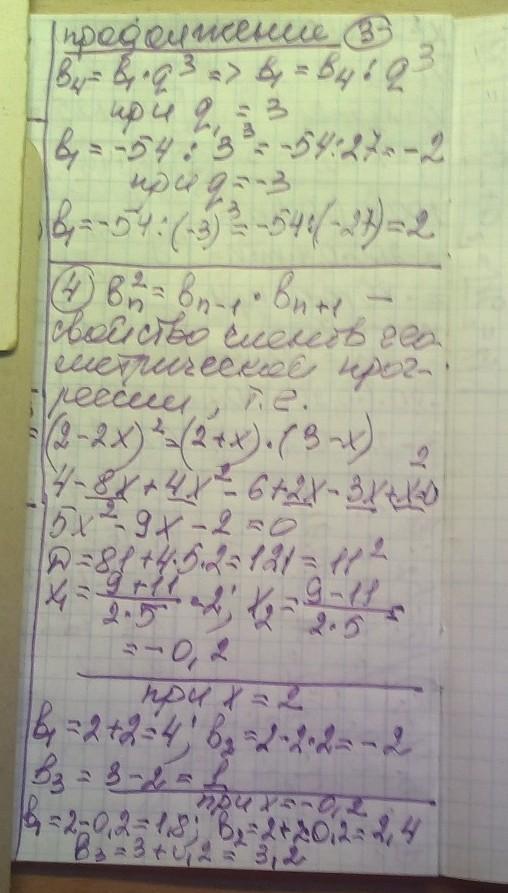 продолжение ③
b₄ = b₁ · q³ => b₁ = b₄ : q³
при q = 3
b₁ = -54 : 3³ = -54 : 27 = -2
при q = -3
b₁ = -54 : (-3)³ = -54 : (-27) = 2
④ bₙ² = bₙ₋₁ · bₙ₊₁ –
свойство членов гео-
метрической прог-
рессии, т.е.
(2-2x)² = (2+x) · (3-x)
4 - 8x + 4x² - 6 + 2x - 3x + x² = 0
5x² - 9x - 2 = 0
D = 81 + 4·5·2 = 121 = 11²
x₁ = (9+11)/(2·5) = 2; x₂ = (9-11)/(2·5) =
= -0,2
при x = 2
b₁ = 2+2 = 4; b₂ = 2-2·2 = -2
b₃ = 3-2 = 1
при x = -0,2
b₁ = 2-0,2 = 1,8; b₂ = 2+2·0,2 = 2,4
b₃ = 3+0,2 = 3,2